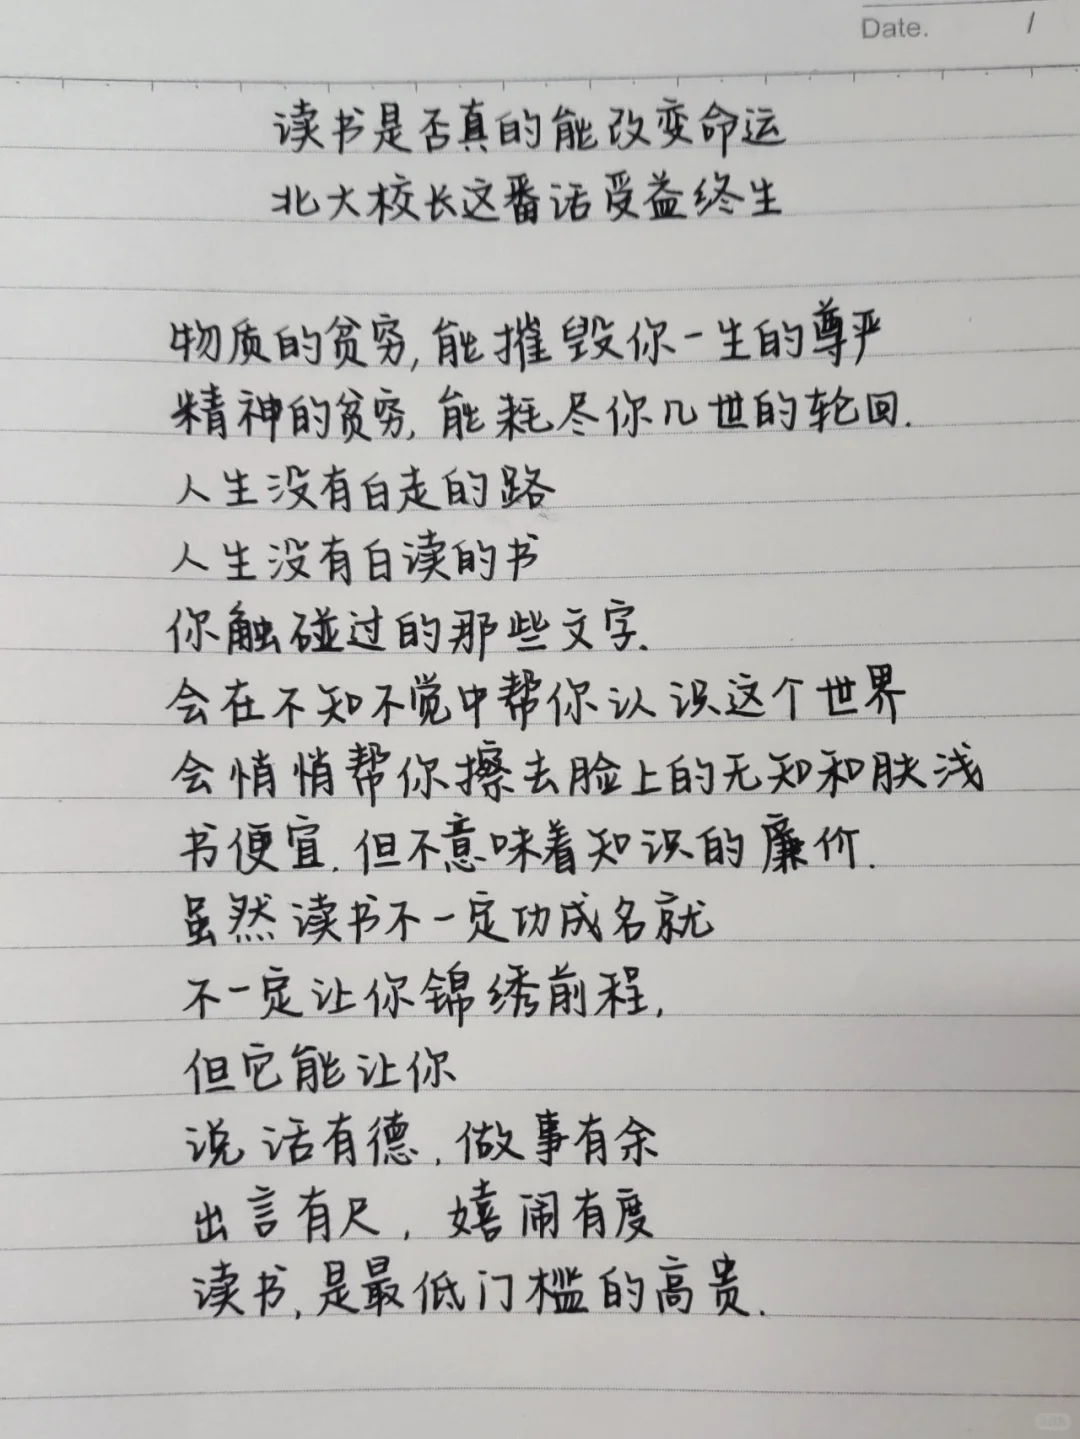 Date. /
读书是否真的能改变命运
北大校长这番话受益终生
物质的贫穷,能摧毁你一生的尊严
精神的贫穷,能耗尽你几世的轮回.
人生没有白走的路
人生没有白读的书
你触碰过的那些文字.
会在不知不觉中帮你认识这个世界
会悄悄帮你擦去脸上的无知和肤浅
书便宜.但不意味着知识的廉价.
虽然读书不一定功成名就
不一定让你锦绣前程,
但它能让你
说话有德,做事有余
出言有尺,嬉闹有度
读书,是最低门槛的高贵.